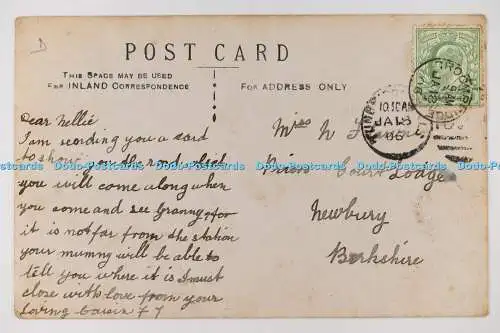 D
POST CARD
THIS SPACE MAY BE USED
FOR INLAND CORRESPONDENCE
FOR ADDRESS ONLY
Dear Nellie
I am sending you a card
to show you the road that
you will come along when
you come and see Granny, for
it is not far from the station
your mumy will be able to
tell you where it is I must
close with love from your
Loving
Miss N
Court Lodge
Newbury
Berkshire
10.15AM
JA 18
06
Postcards Postcards Postcards Postcards Postcards Postcards